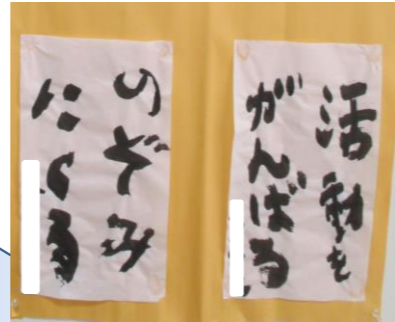 活動を
がんばる
のぞみ
にくる